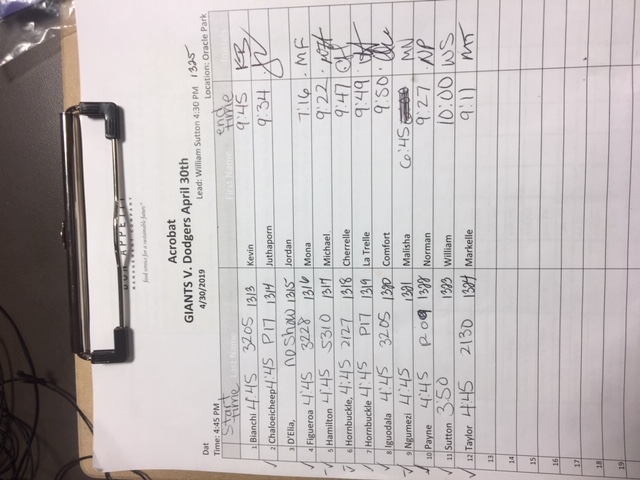 BON APPÉTIT
food service for a sustainable future
Acrobat
GIANTS V. Dodgers April 30th
4/30/2019
Lead: William Sutton 4:30 PM 1325
Dat
Time: 4:45 PM
Location: Oracle Park
Last Name First Name
Start time end time
1 Bianchi 4:45 3205 1313 Kevin 9:45 KB
2 Chaloeicheep 4:45 P17 1314 Juthaporn 9:34
3 D'Elia, no show 1315 Jordan
4 Figueroa 4:45 3228 1316 Mona 7:16 MF
5 Hamilton 4:45 5310 1317 Michael 9:22
6 Hornbuckle, 4:45 2127 1318 Cherrelle 9:47 CH
7 Hornbuckle 4:45 P17 1319 La Trelle 9:49
8 Iguodala 4:45 3205 1320 Comfort 9:50
9 Ngumezi 4:45 1321 Malisha 6:45 MN
10 Payne 4:45 P09 1322 Norman 9:27 NP
11 Sutton 3:50 1323 William 10:00 WS
12 Taylor 4:45 2130 1324 Markelle 9:11 MT
13
14
15
16
17
18
19